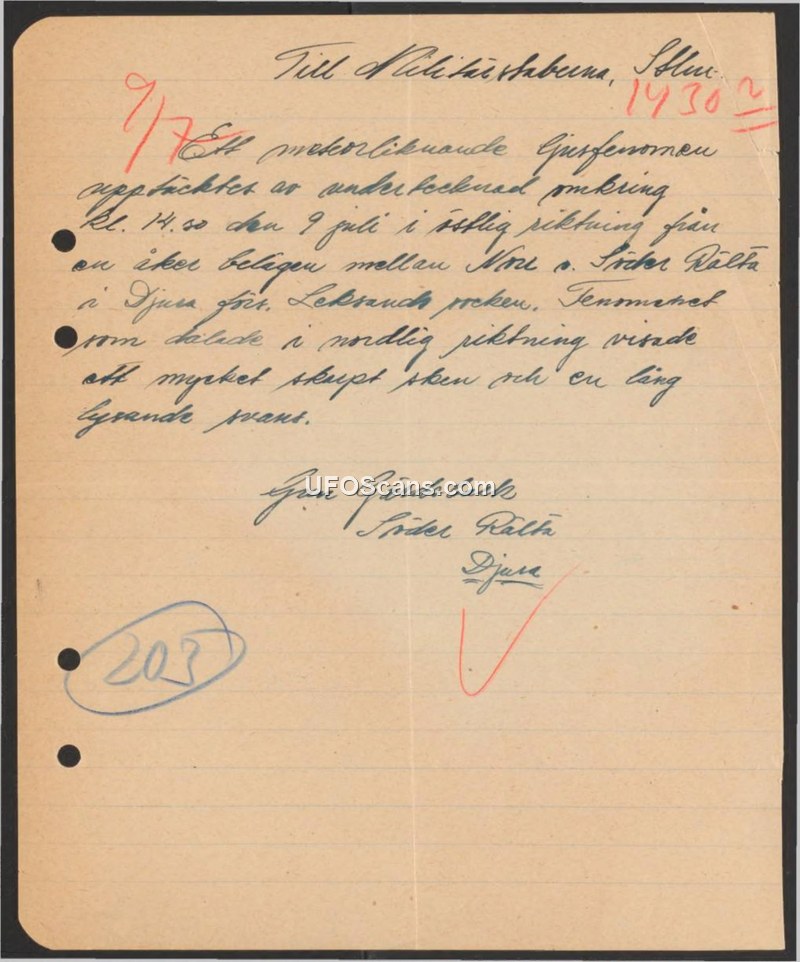 Till Militärstaberna, Sthlm.
9/7
1430
Ett meteorliknande ljusfenomen
upptäcktes av undertecknad omkring
kl. 14.30 den 9 juli i östlig riktning från
en åker belägen mellan Norr o. Söder Rälta
i Djura förs. Leksands socken. Fenomenet
som dalade i nordlig riktning visade
ett mycket skarpt sken och en lång
lysande svans.
UFOScans.com
Söder Rälta
Djura
203